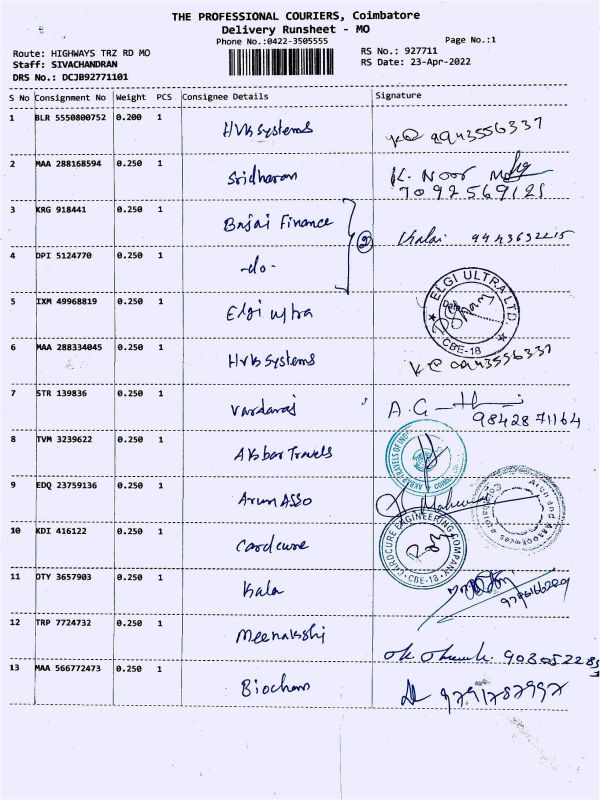 THE PROFESSIONAL COURIERS, Coimbatore
Delivery Runsheet - MO
Phone No.:0422-3505555
Page No.:1
Route: HIGHWAYS TRZ RD MO
RS No.: 927711
Staff: SIVACHANDRAN
RS Date: 23-Apr-2022
DRS No.: DCJB92771101
S No Consignment No Weight PCS Consignee Details Signature
1 BLR 5550800752 0.200 1 HVK Systems 9943556337
2 MAA 288168594 0.250 1 Sridharan K. Noor
7092569121
3 KRG 918441 0.250 1 Bajaj Finance
② Kalai 9443632215
4 DPI 5124770 0.250 1 -do-
5 IXM 49968819 0.250 1 Elgi ultra ELGI ULTRA LTD. CBE-18
6 MAA 288334045 0.250 1 HVK Systems 9943556337
7 STR 139836 0.250 1 Vardaraj A.G
9842871164
8 TVM 3239622 0.250 1 Akbar Travels AKBAR TRAVELS OF
9 EDQ 23759136 0.250 1 Arun Asso Arun And Associates
10 KDI 416122 0.250 1 Cardcure CARDCURE ENGINEERING COMPANY CBE-18
11 OTY 3657903 0.250 1 Kala
12 TRP 7724732 0.250 1 Meenakshi
13 MAA 566772473 0.250 1 Biochem 9791787997